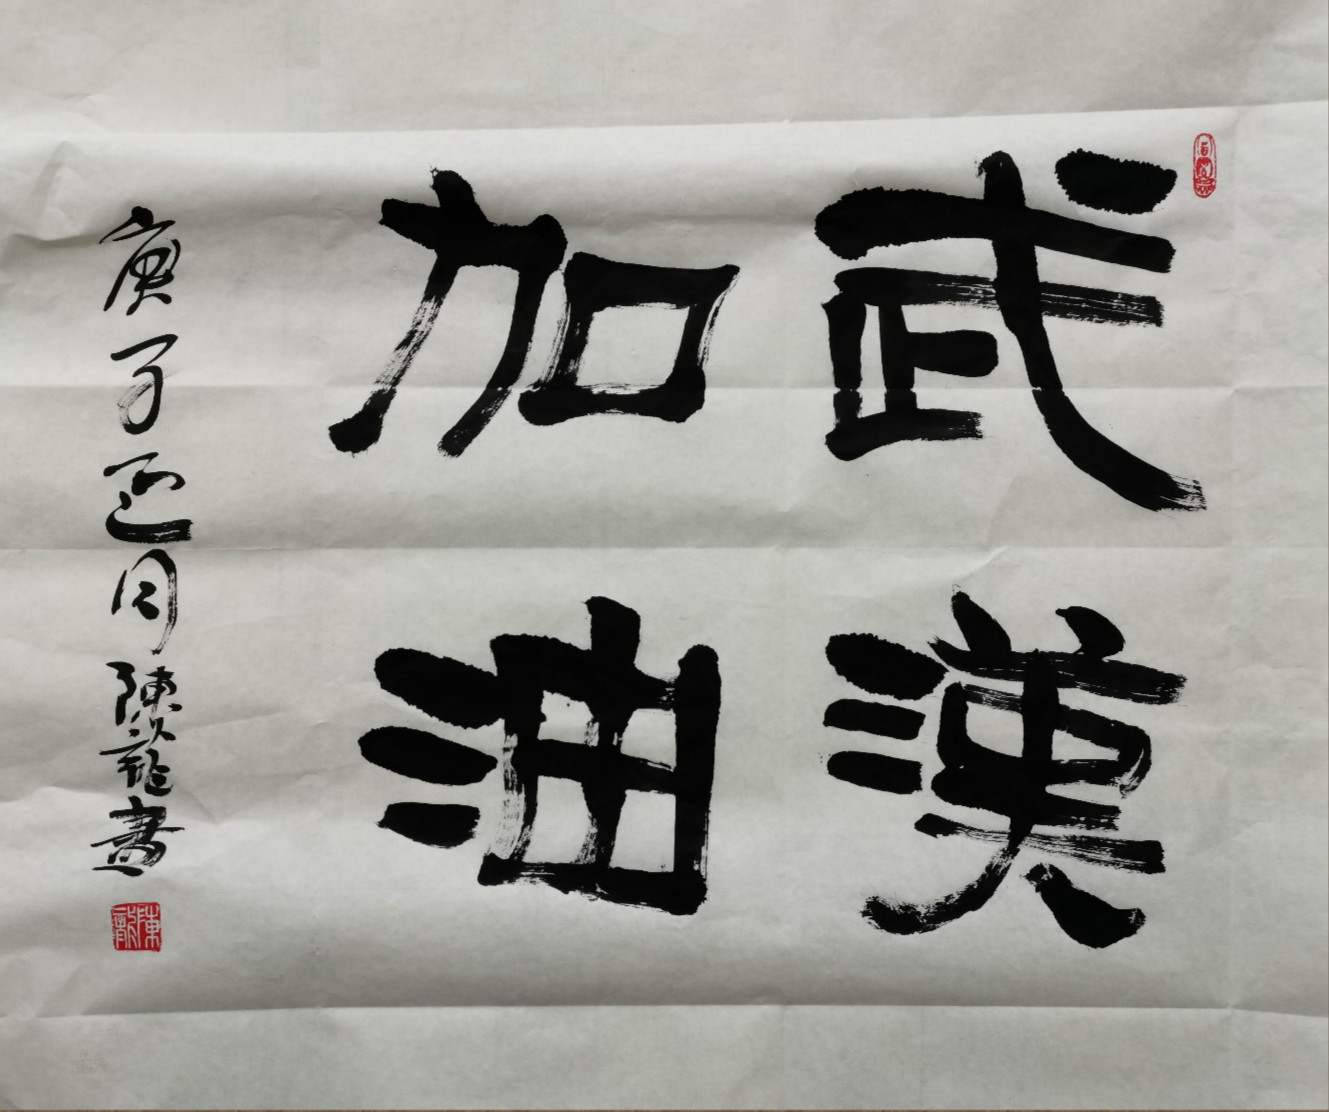 武漢
加油
庚子正月陳龍書
陳龍